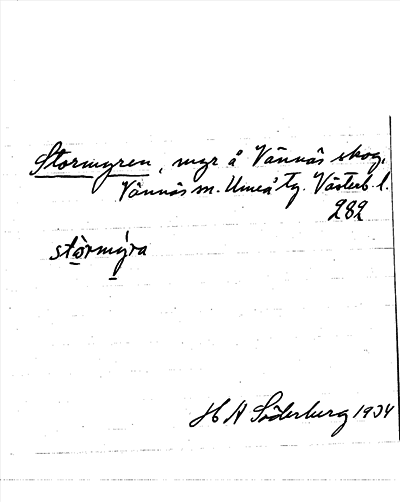 Stormyren, myr å Vännäs skog,
Vännäs sn. Umeå tg. Västerb. l.
282
stòrmýra
H A Söderberg 1934